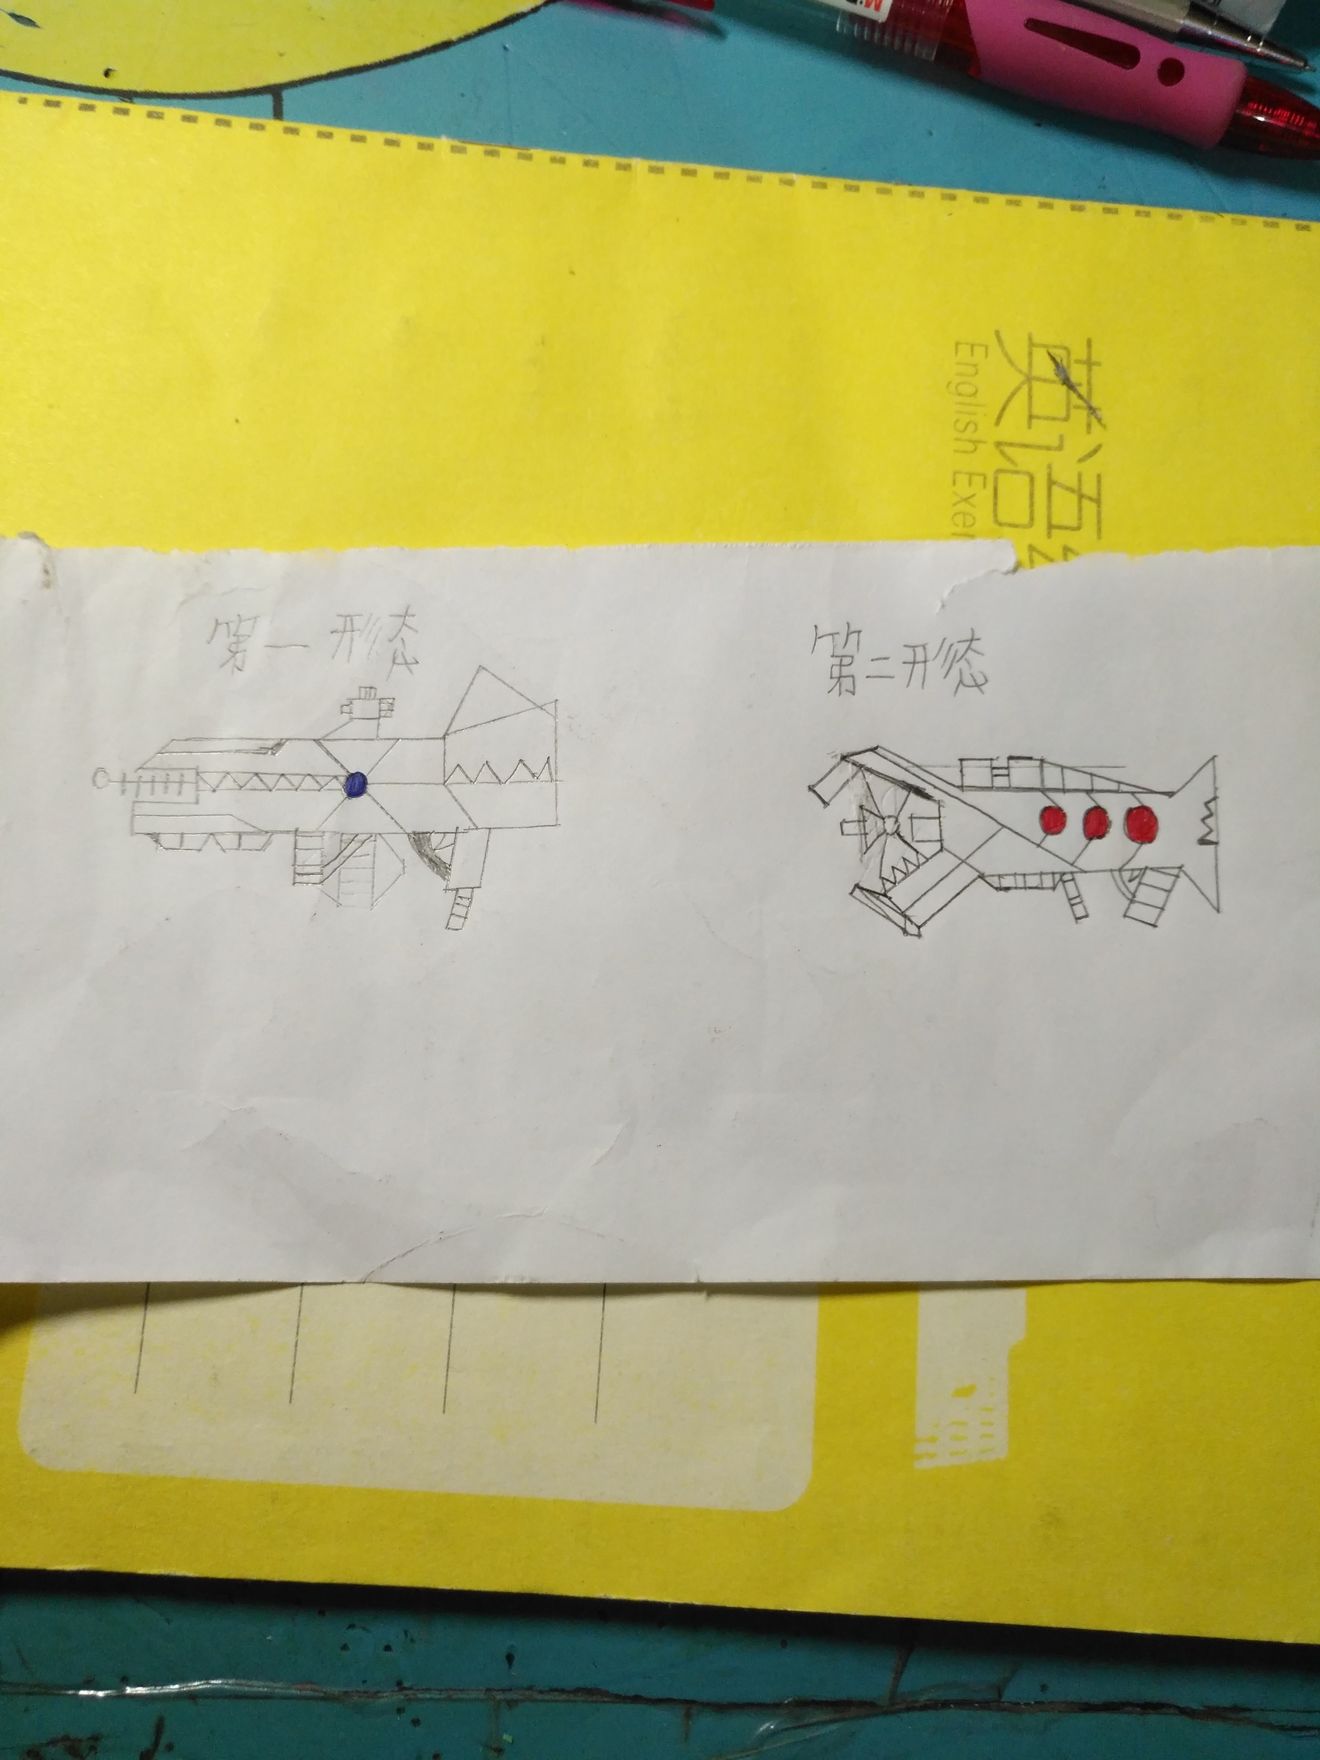 英语
English Exer
第一形态
第二形态